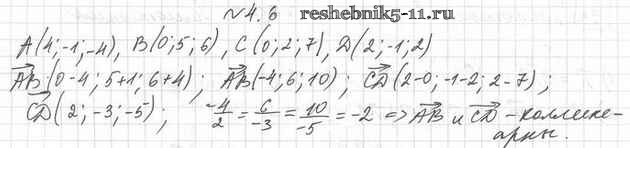 №4.6 reshebnik5-11.ru
A(4;-1;-4), B(0;5;6), C(0;2;7), D(2;-1;2)
AB(0-4; 5+1; 6+4); AB(-4;6;10); CD(2-0; -1-2; 2-7);
CD(2;-3;-5); -4/2 = 6/-3 = 10/-5 = -2 => AB и CD - коллине-
арны.